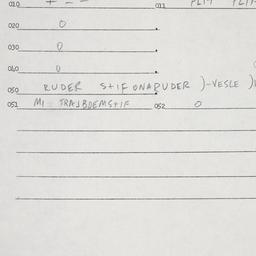 010 + - - 011
020 0
030 0
040 0
050 RUDER STIFONAPUDER )-VESLE )
051 MI : TRAJBDEMSTIF 052 0